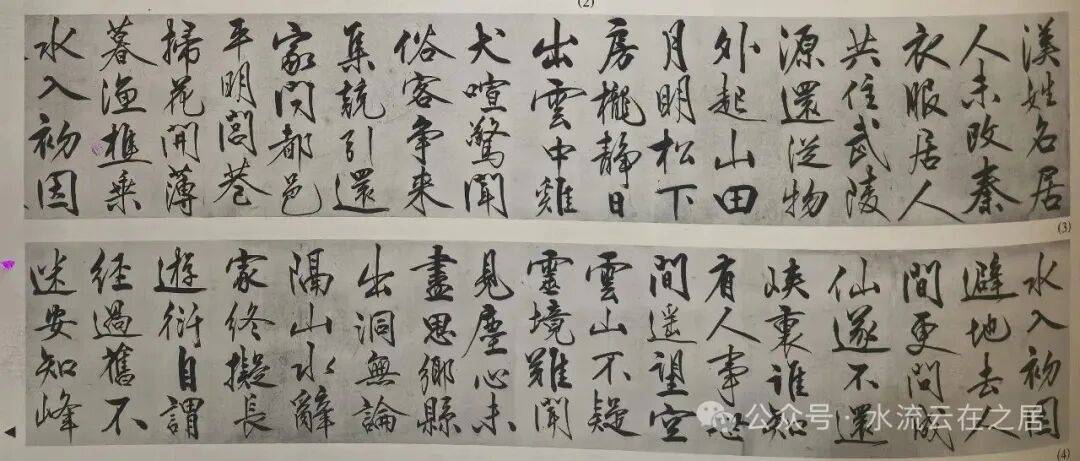 (2)
漢姓名居
人未改秦
衣服居人
共住武陵
源還從物
外起山田
月明松下
房櫳静日
出雲中雞
犬喧驚聞
俗客争来
集競引還
家問都邑
平明閭巷
掃花開薄
暮漁樵乗
水入初因
(3)
水入初因
避地去人
間更問成
仙遂不還
峽裏誰知
有人事世
間遥望空
雲山不疑
靈境難聞
見塵心未
盡思鄉縣
出洞無論
隔山水辭
家終擬長
遊衍自謂
經過舊不
迷安知峰
(4)
公众号·水流云在之居